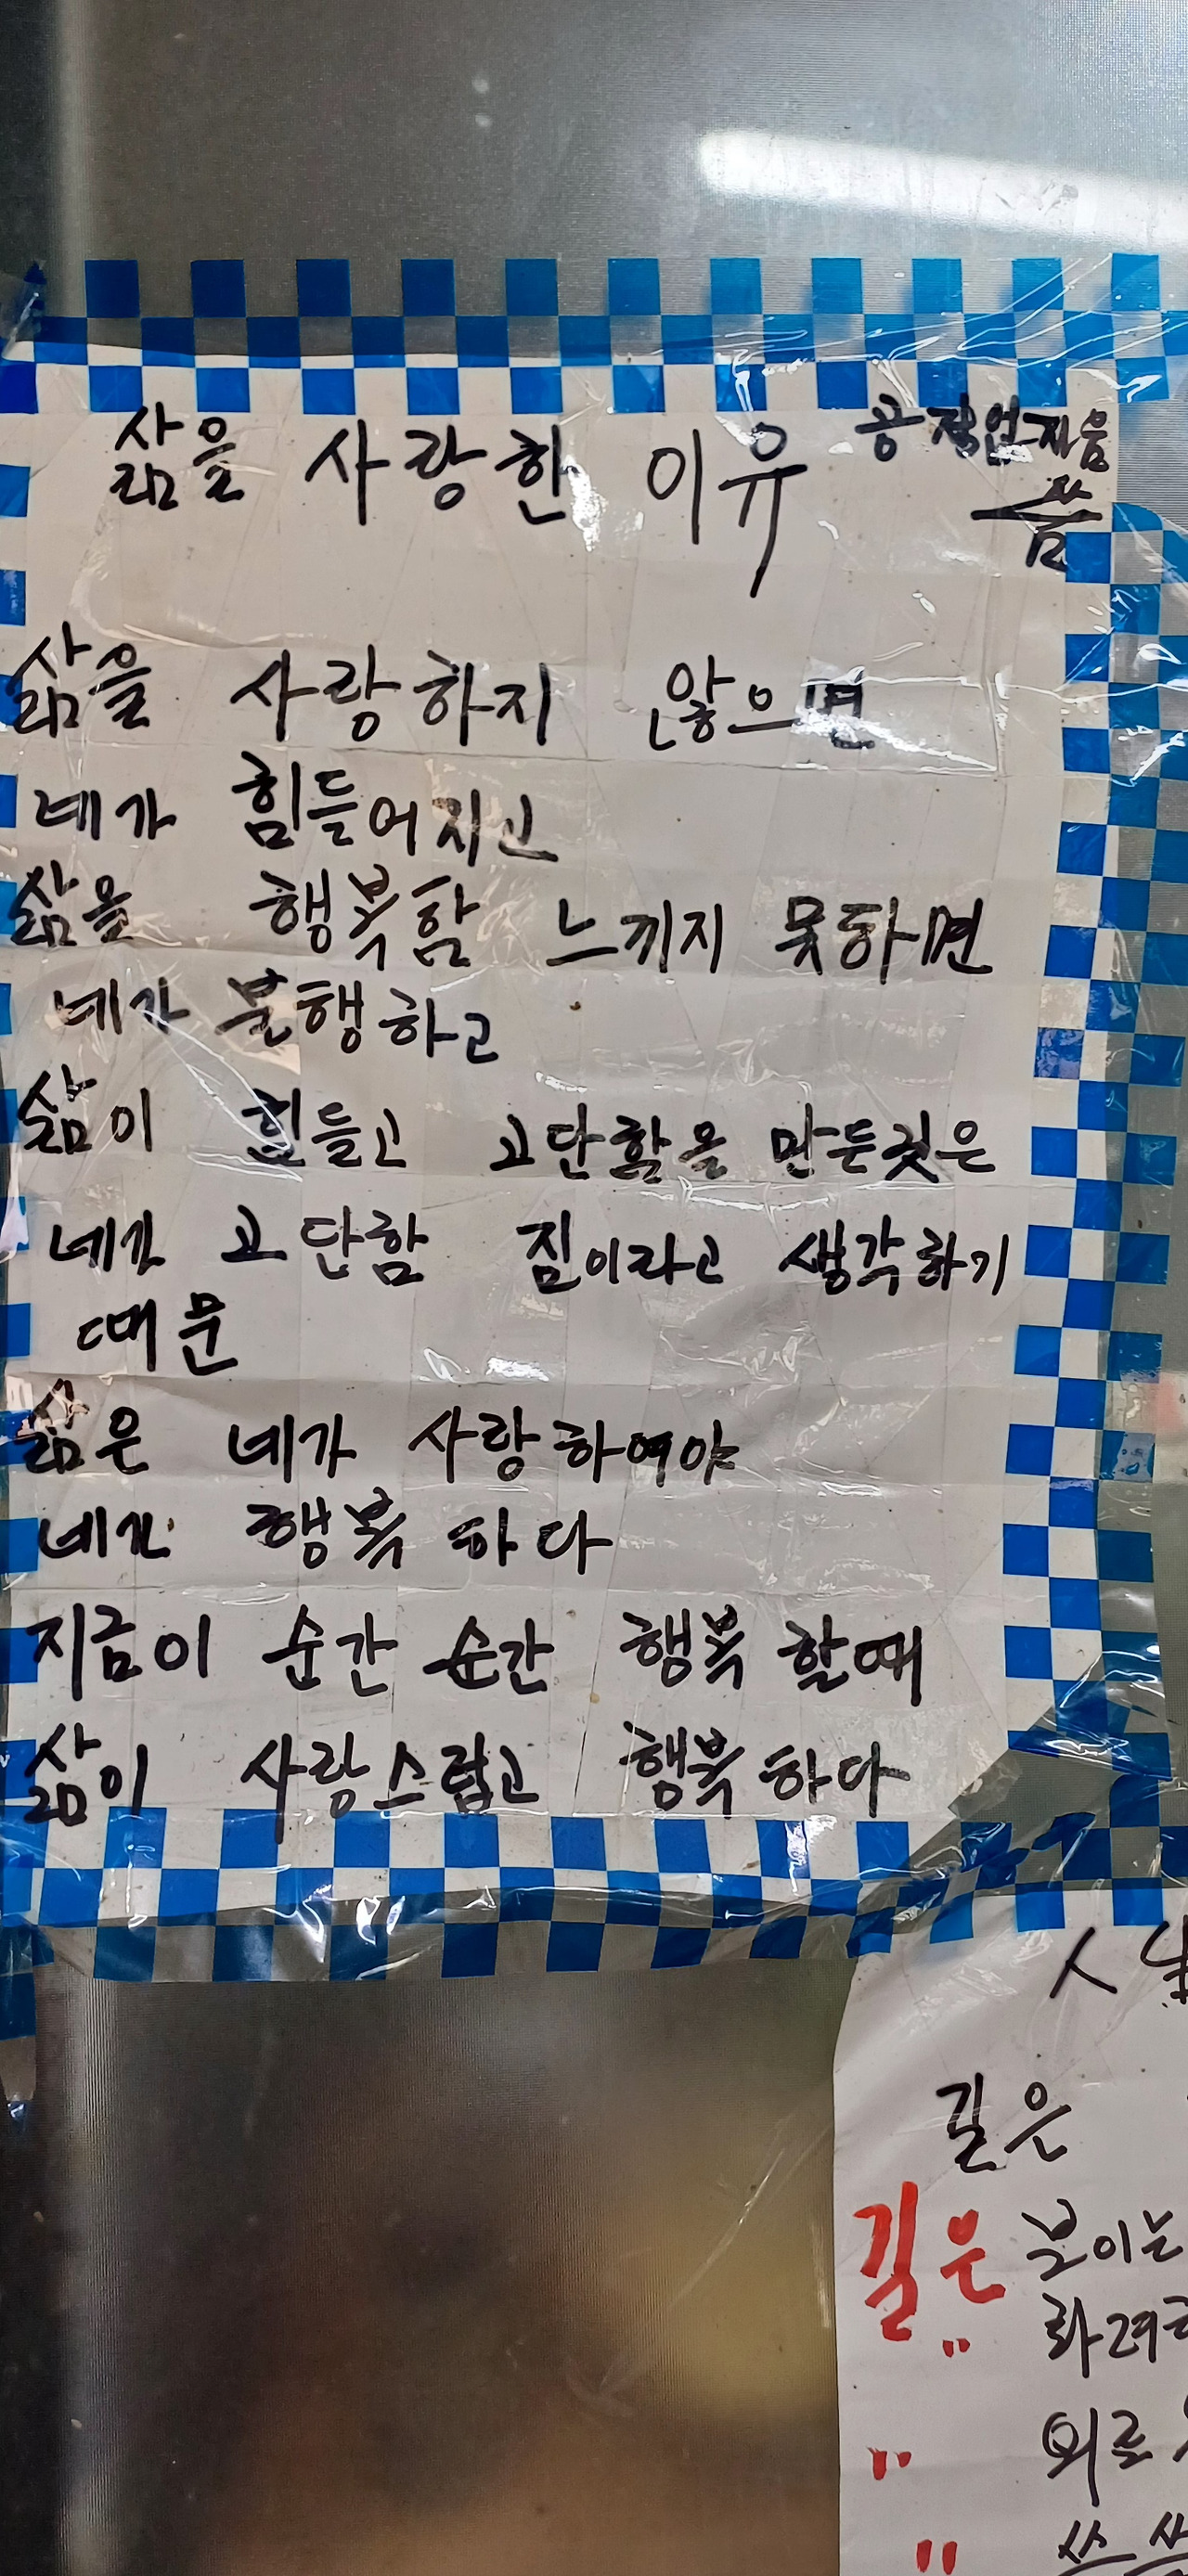 삶을 사랑한 이유
지음
씀
삶을 사랑하지 않으면
네가 힘들어지고
삶을 행복함 느끼지 못하면
네가 불행하고
삶이 힘들고 고단함을 만든것은
네가 고단함 짐이라고 생각하기
때문
삶은 네가 사랑하여야
네가 행복하다
지금이 순간 순간 행복할때
삶이 사랑스럽고 행복하다
길은
길은 보이는
"
"
"